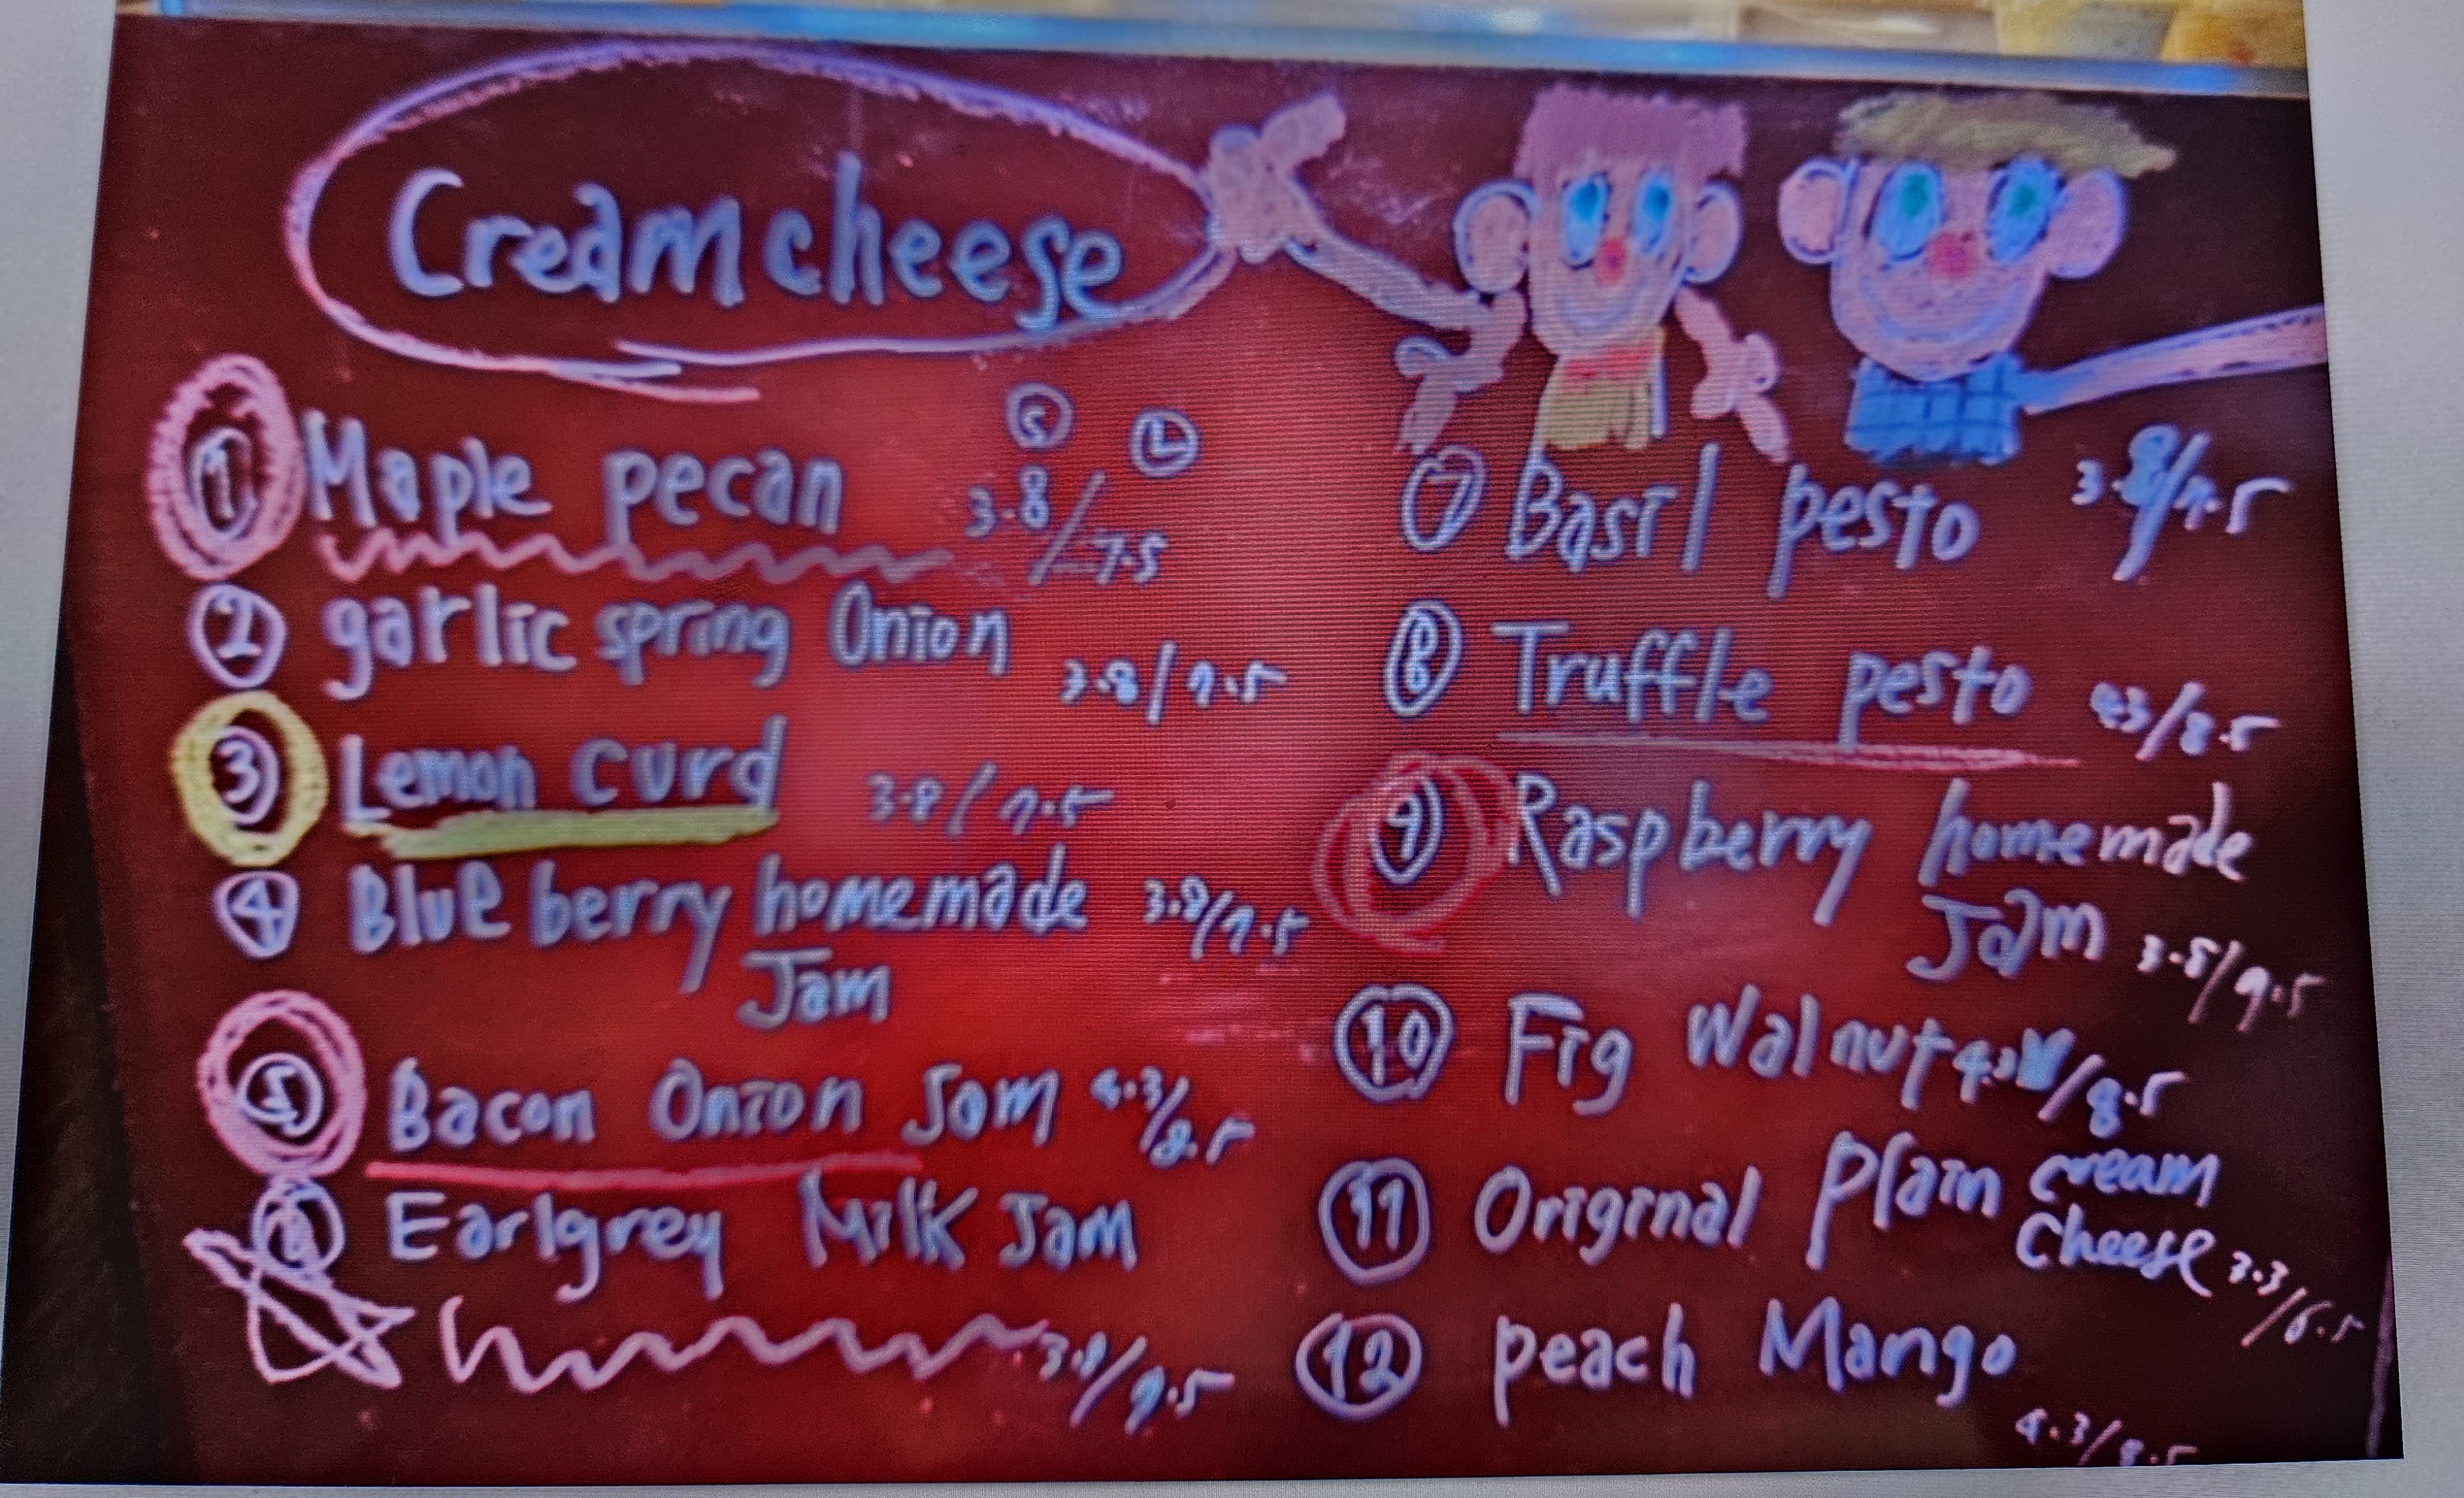 Cream cheese
S L
1 Maple pecan 3.8/7.5
2 garlic spring Onion 3.8/7.5
3 Lemon curd 3.8/7.5
4 Blue berry homemade 3.8/7.5
Jam
5 Bacon Onion Jam 4.3/8.5
6 Earlgrey Milk Jam
3.8/7.5
7 Basil pesto 3.8/7.5
8 Truffle pesto 4.3/8.5
9 Raspberry homemade
Jam
10 Fig Walnut /8.5
11 Original Plain cream
Cheese 3.3/6.5
12 peach Mango
4.3/8.5